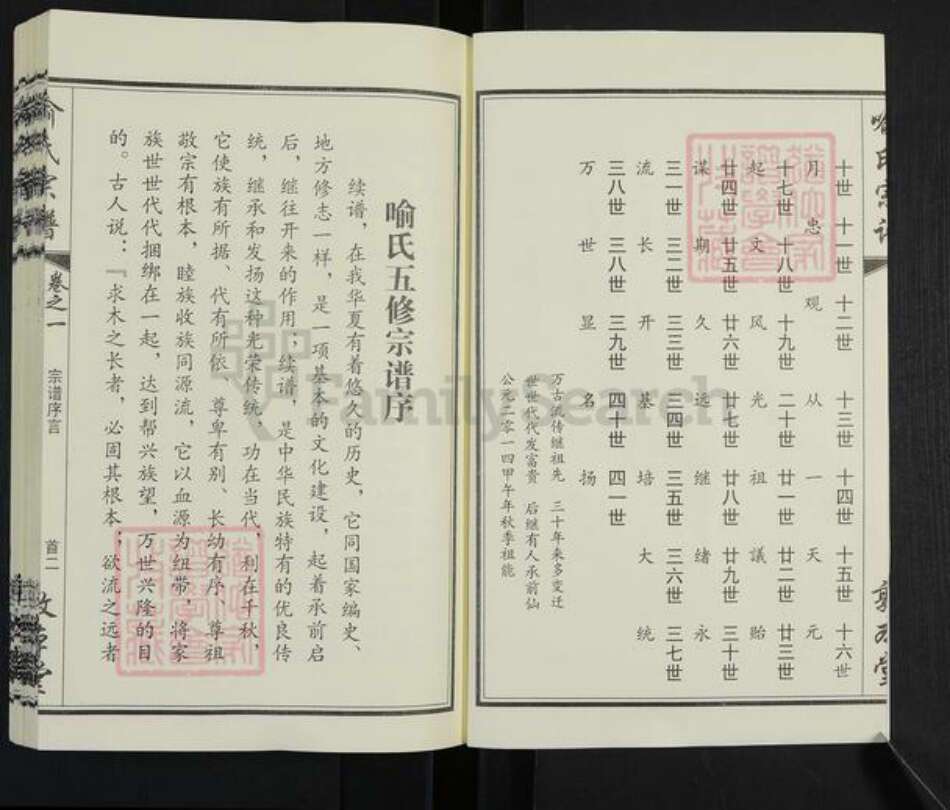 十世 十一世 十二世 十三世 十四世 十五世 十六世
月 忠 观 从 一 天 元
十七世 十八世 十九世 二十世 廿一世 廿二世 廿三世
起 文 风 光 祖 議 贻
廿四世 廿五世 廿六世 廿七世 廿八世 廿九世 三十世
谋 期 久 远 继 绪 永
三一世 三二世 三三世 三四世 三五世 三六世 三七世
流 长 开 基 培 大 统
三八世 三八世 三九世 四十世 四一世
万 世 显 名 扬
万古流传继祖先 三十年来多变迁
世世代代发富贵 后继有人承前仙
公元二零一四甲午年秋季祖能
喻氏宗谱
喻氏五修宗谱序
续谱，在我华夏有着悠久的历史，它同国家编史、
地方修志一样，是一项基本的文化建设，起着承前启
后，继往开来的作用；续谱，是中华民族特有的优良传
统，继承和发扬这种光荣传统，功在当代，利在千秋，
它使族有所据、代有所依、尊卑有别、长幼有序、尊祖
敬宗有根本，睦族收族同源流，它以血源为纽带，将家
族世世代代捆绑在一起，达到帮兴族望，万世兴隆的目
的。古人说：「求木之长者，必固其根本；欲流之远者
喻氏宗谱
卷之一
宗谱序言
首二
FamilySearch